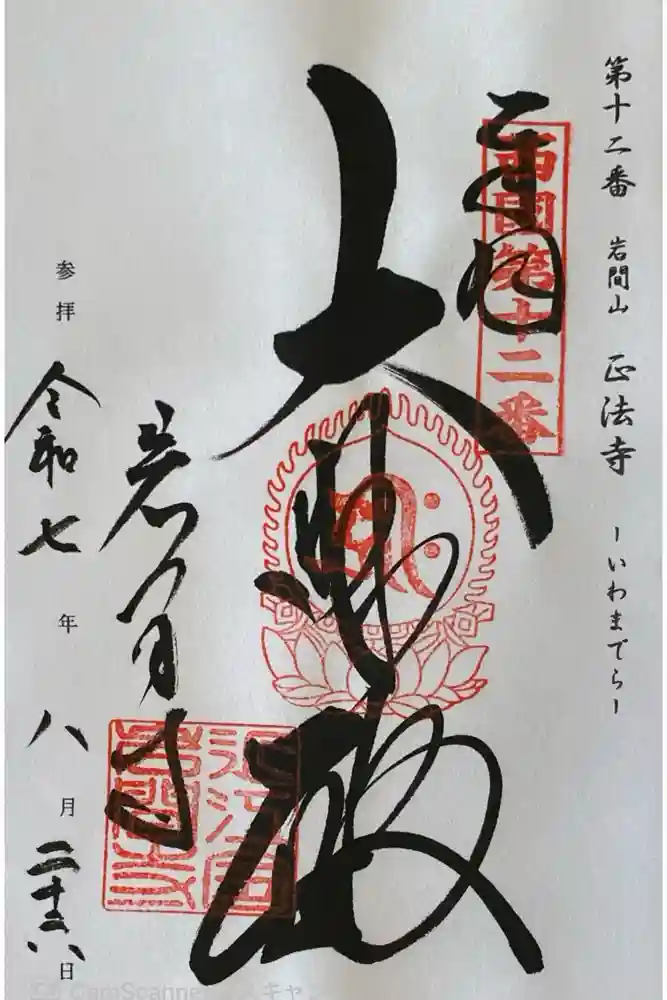 第十二番 岩間山 正法寺 ーいわまでらー
奉拝
西国第十二番
大悲殿
岩間寺
参拝 令和七年八月二十六日
CamScanner